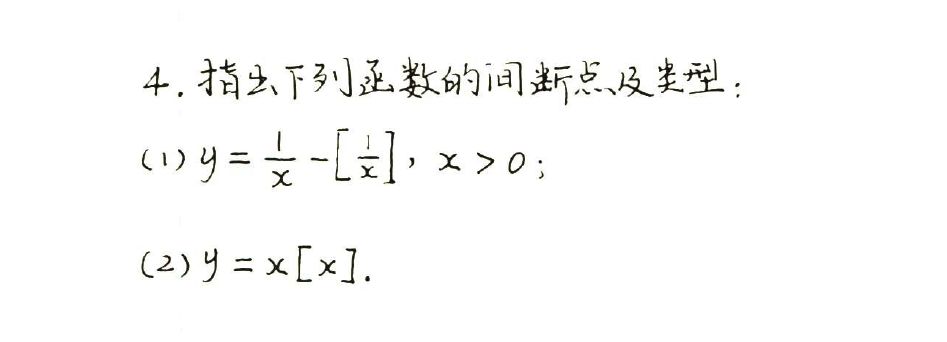 4. 指出下列函数的间断点及类型:
(1) y = 1/x - [1/x], x > 0;
(2) y = x[x].